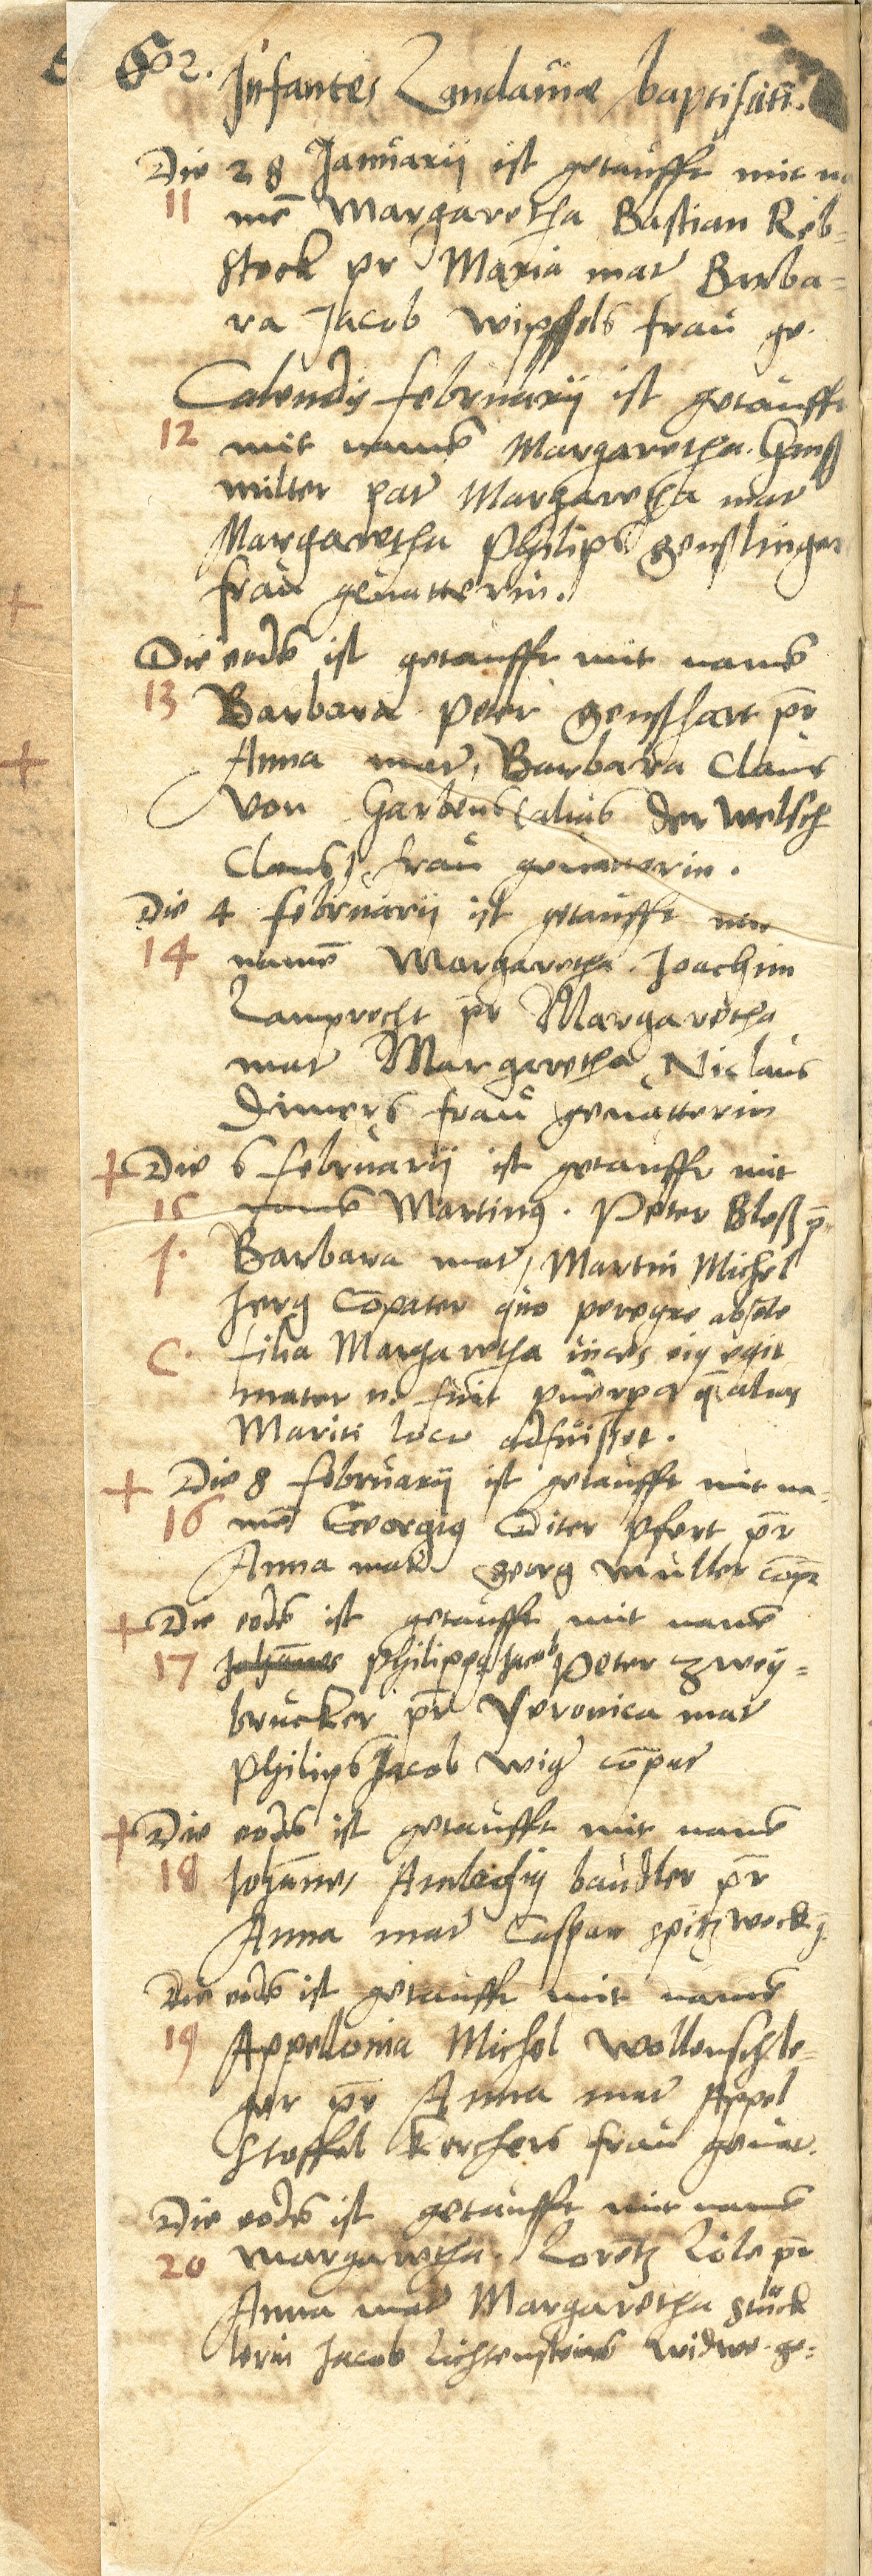 602. Infantes Landauiæ baptisati.
Die 28 Januarij ist getaufft mit na
11 mē Margaretha Bastian Reb=
stock pr Maria mat Barba=
ra Jacob wipffels frau ge.
Calendis februarij ist getaufft
12 mit namē Margaretha.
milter pat Margaretha mat
Margaretha Philips genslinger
frau geuatterin.
Die eodē ist getaufft mit namē
13 Barbara Peter genshart pr
Anna mat, Barbara Claus
von Garbens (alias der welsch
Claus) frau geuatterin.
Die 4 februarij ist getaufft mit
14 namē Margaretha. Joachim
Lamprecht pr Margaretha
mat Margaretha Niclaus
Dimers frau geuatterin
+ Die 6 februarij ist getaufft mit
15 namē Martinus. Peter Bloß p
Barbara mat, Martin Michel
Jerg Cōpater quo peregre absēte
C. filia Margaretha uices eius egit
mater n. fuit puerpera alias
Mariti loco adfuisset.
+ Die 8 februarij ist getaufft mit na
16 mē Georgius Diter pfort pr
Anna mat. georg muller cōpr
+ Die eodē ist getaufft mit namē
17 Johānnes Philippus Jacob Peter zwey=
brucker pr Veronica mat
Philips Jacob wig cōpat
+ Die eodē ist getaufft mit namē
18 Johānnes Ambrosij baudler pr
Anna mat Caspar spitzweck
Die eodē ist getaufft mit namē
19 Appellonia Michel wollenschle=
ger pr Anna mat Appel
Stoffel Kerchers frau geuat.
Die eodē ist getaufft mit namē
20 margaretha. Loretz Löle pr
Anna mat Margaretha
lerin Jacob Lichtensteins widwe ge=